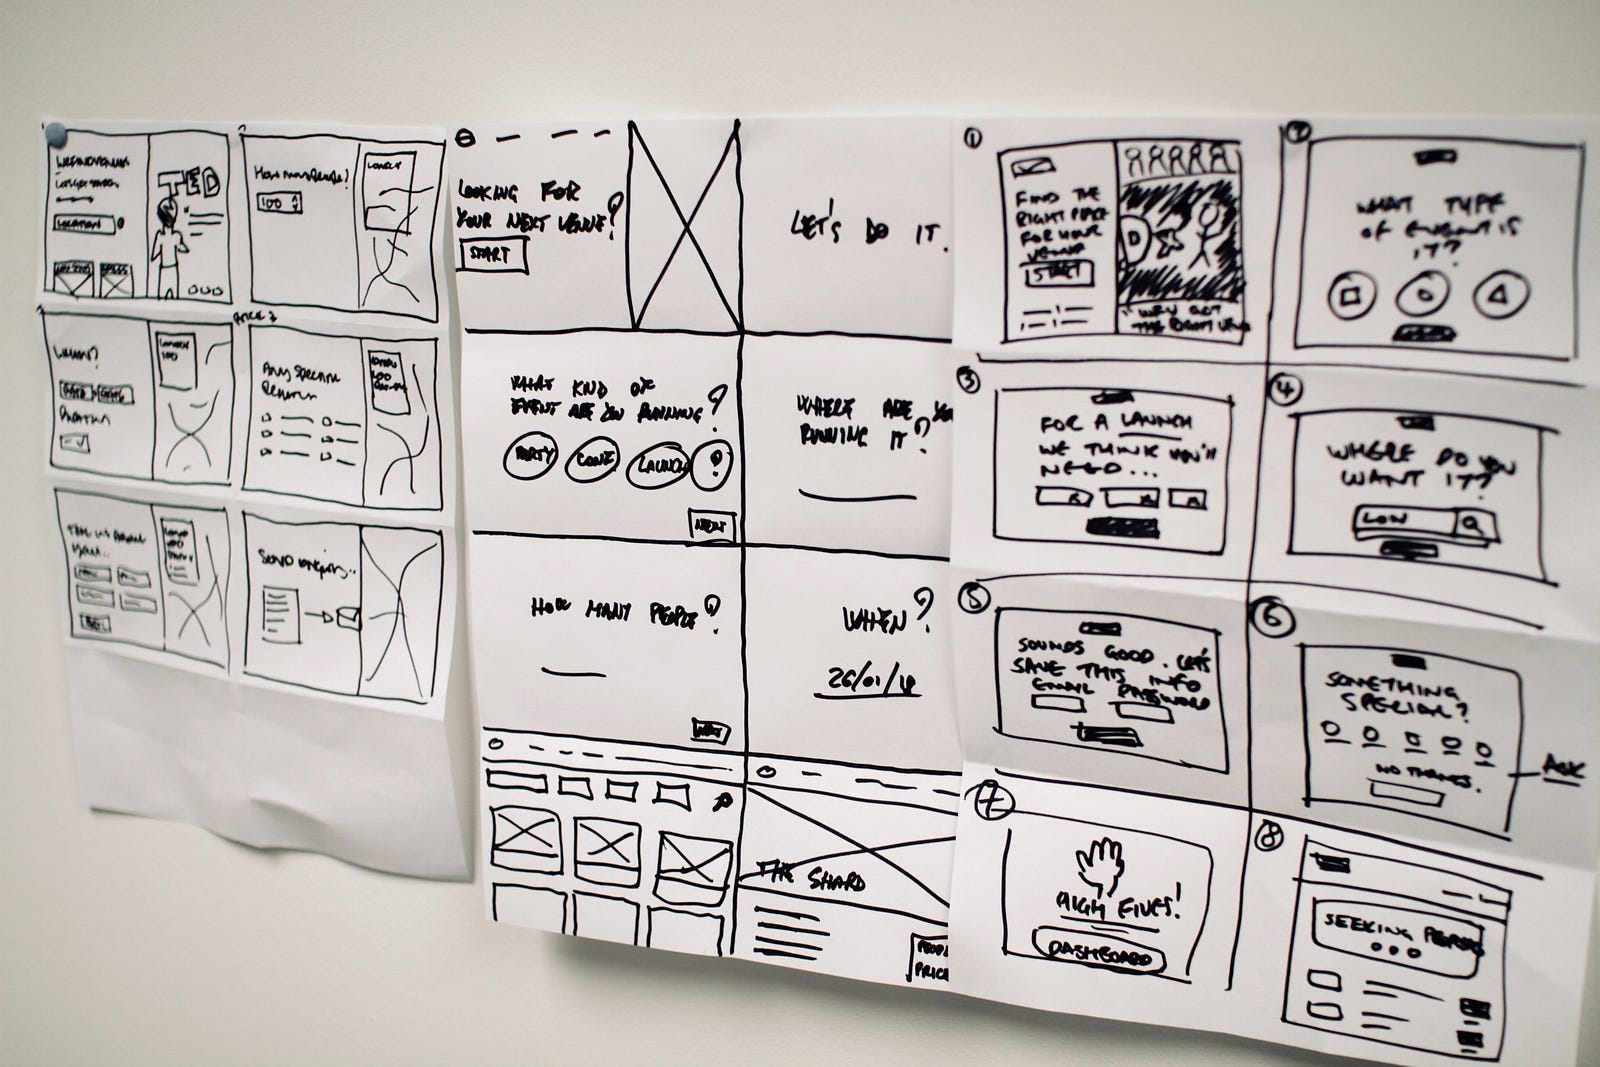 TED
LOCATION
How many people?
100
LONDON
When?
LONDON
100
Any Special
LONDON
100
Send enquiry..
LOOKING FOR
YOUR NEXT VENUE?
START
LET'S DO IT.
WHAT KIND OF
EVENT ARE YOU RUNNING?
PARTY
CONF
LAUNCH
?
NEXT
WHERE ARE YOU
RUNNING IT?
HOW MANY PEOPLE?
NEXT
WHEN?
26/01/18
THE SHARD
PRICE
1
FIND THE
RIGHT PLACE
FOR YOUR
START
D
2
WHAT TYPE
OF EVENT IS
IT?
3
FOR A LAUNCH
WE THINK YOU'LL
NEED...
4
WHERE DO YOU
WANT IT?
LON
5
SOUNDS GOOD. LET'S
SAVE THIS INFO
EMAIL PASSWORD
6
SOMETHING
SPECIAL?
NO THANKS.
ASK
7
HIGH FIVES!
DASHBOARD
8
SEEKING